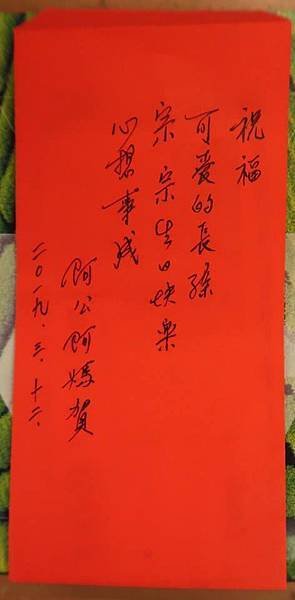 祝福
可愛的長孫
宗宗生日快樂
心想事成
阿公阿媽賀
二〇一九.三.十二.